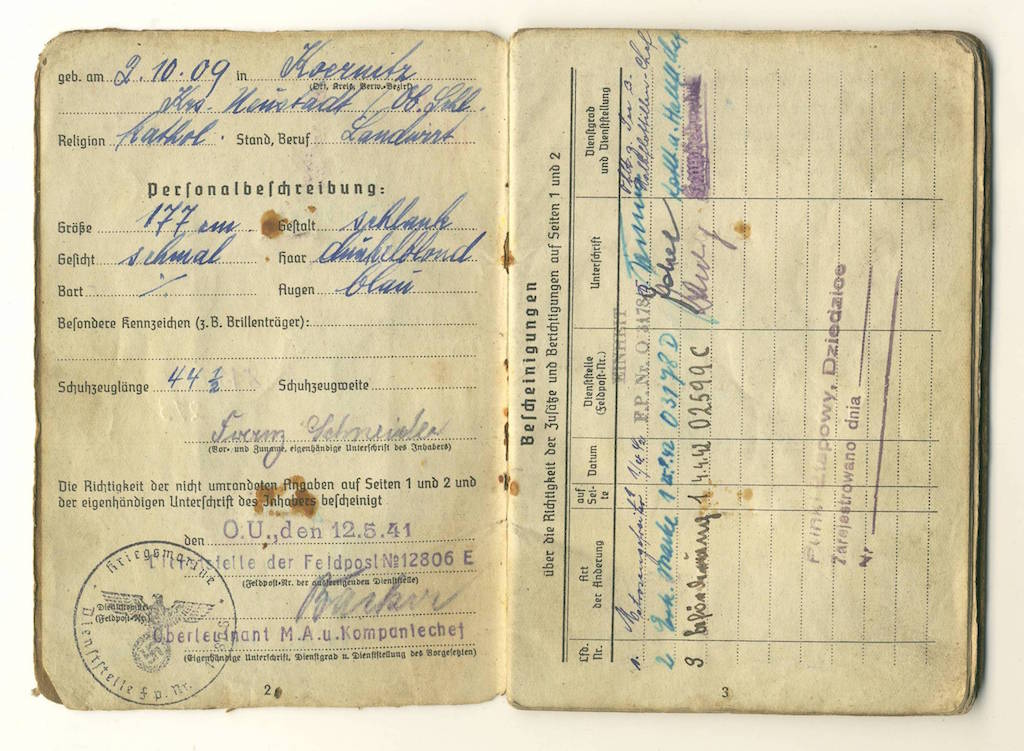 geb. am 2.10.09 in Koernitz
(Ort, Kreis, Verw.-Bezirk)
Krs. Neustadt / Ob. Schl.
Religion kathol. Stand, Beruf Landwirt
Personalbeschreibung:
Größe 177 cm Gestalt schlank
Gesicht schmal Haar dunkelblond
Bart ./. Augen blau
Besondere Kennzeichen (z. B. Brillenträger):
Schuhzeuglänge 44 ½ Schuhzeugweite
Franz Schneider
(Vor- und Zuname, eigenhändige Unterschrift des Inhabers)
Die Richtigkeit der nicht umrandeten Angaben auf Seiten 1 und 2 und
der eigenhändigen Unterschrift des Inhabers bescheinigt
den O.U., den 12.5.41
Dienststelle der Feldpost № 12806 E
(Feldpost-Nr. der ausfertigenden Dienststelle)
Oberleutnant M.A.u. Kompaniechef
(Eigenhändige Unterschrift, Dienstgrad u. Dienststellung des Vorgesetzten)
Dienststempel
(Feldpost-Nr.)
Kriegsmarine
Dienststelle F.p. Nr.
2
Bescheinigungen
über die Richtigkeit der Zusätze und Berichtigungen auf Seiten 1 und 2
Lfd. Nr.
Art der Änderung
auf Seite
Datum
Dienststelle (Feldpost-Nr.)
Unterschrift
Dienstgrad und Dienststellung
EINHEIT
1.
F.P. Nr. O
2 Erk. Marke 1 03178 D
3 Beförderung 1 4.4.42 02599 C
Punkt Etapowy, Dziedzice
Zarejestrowano dnia
Nr
3